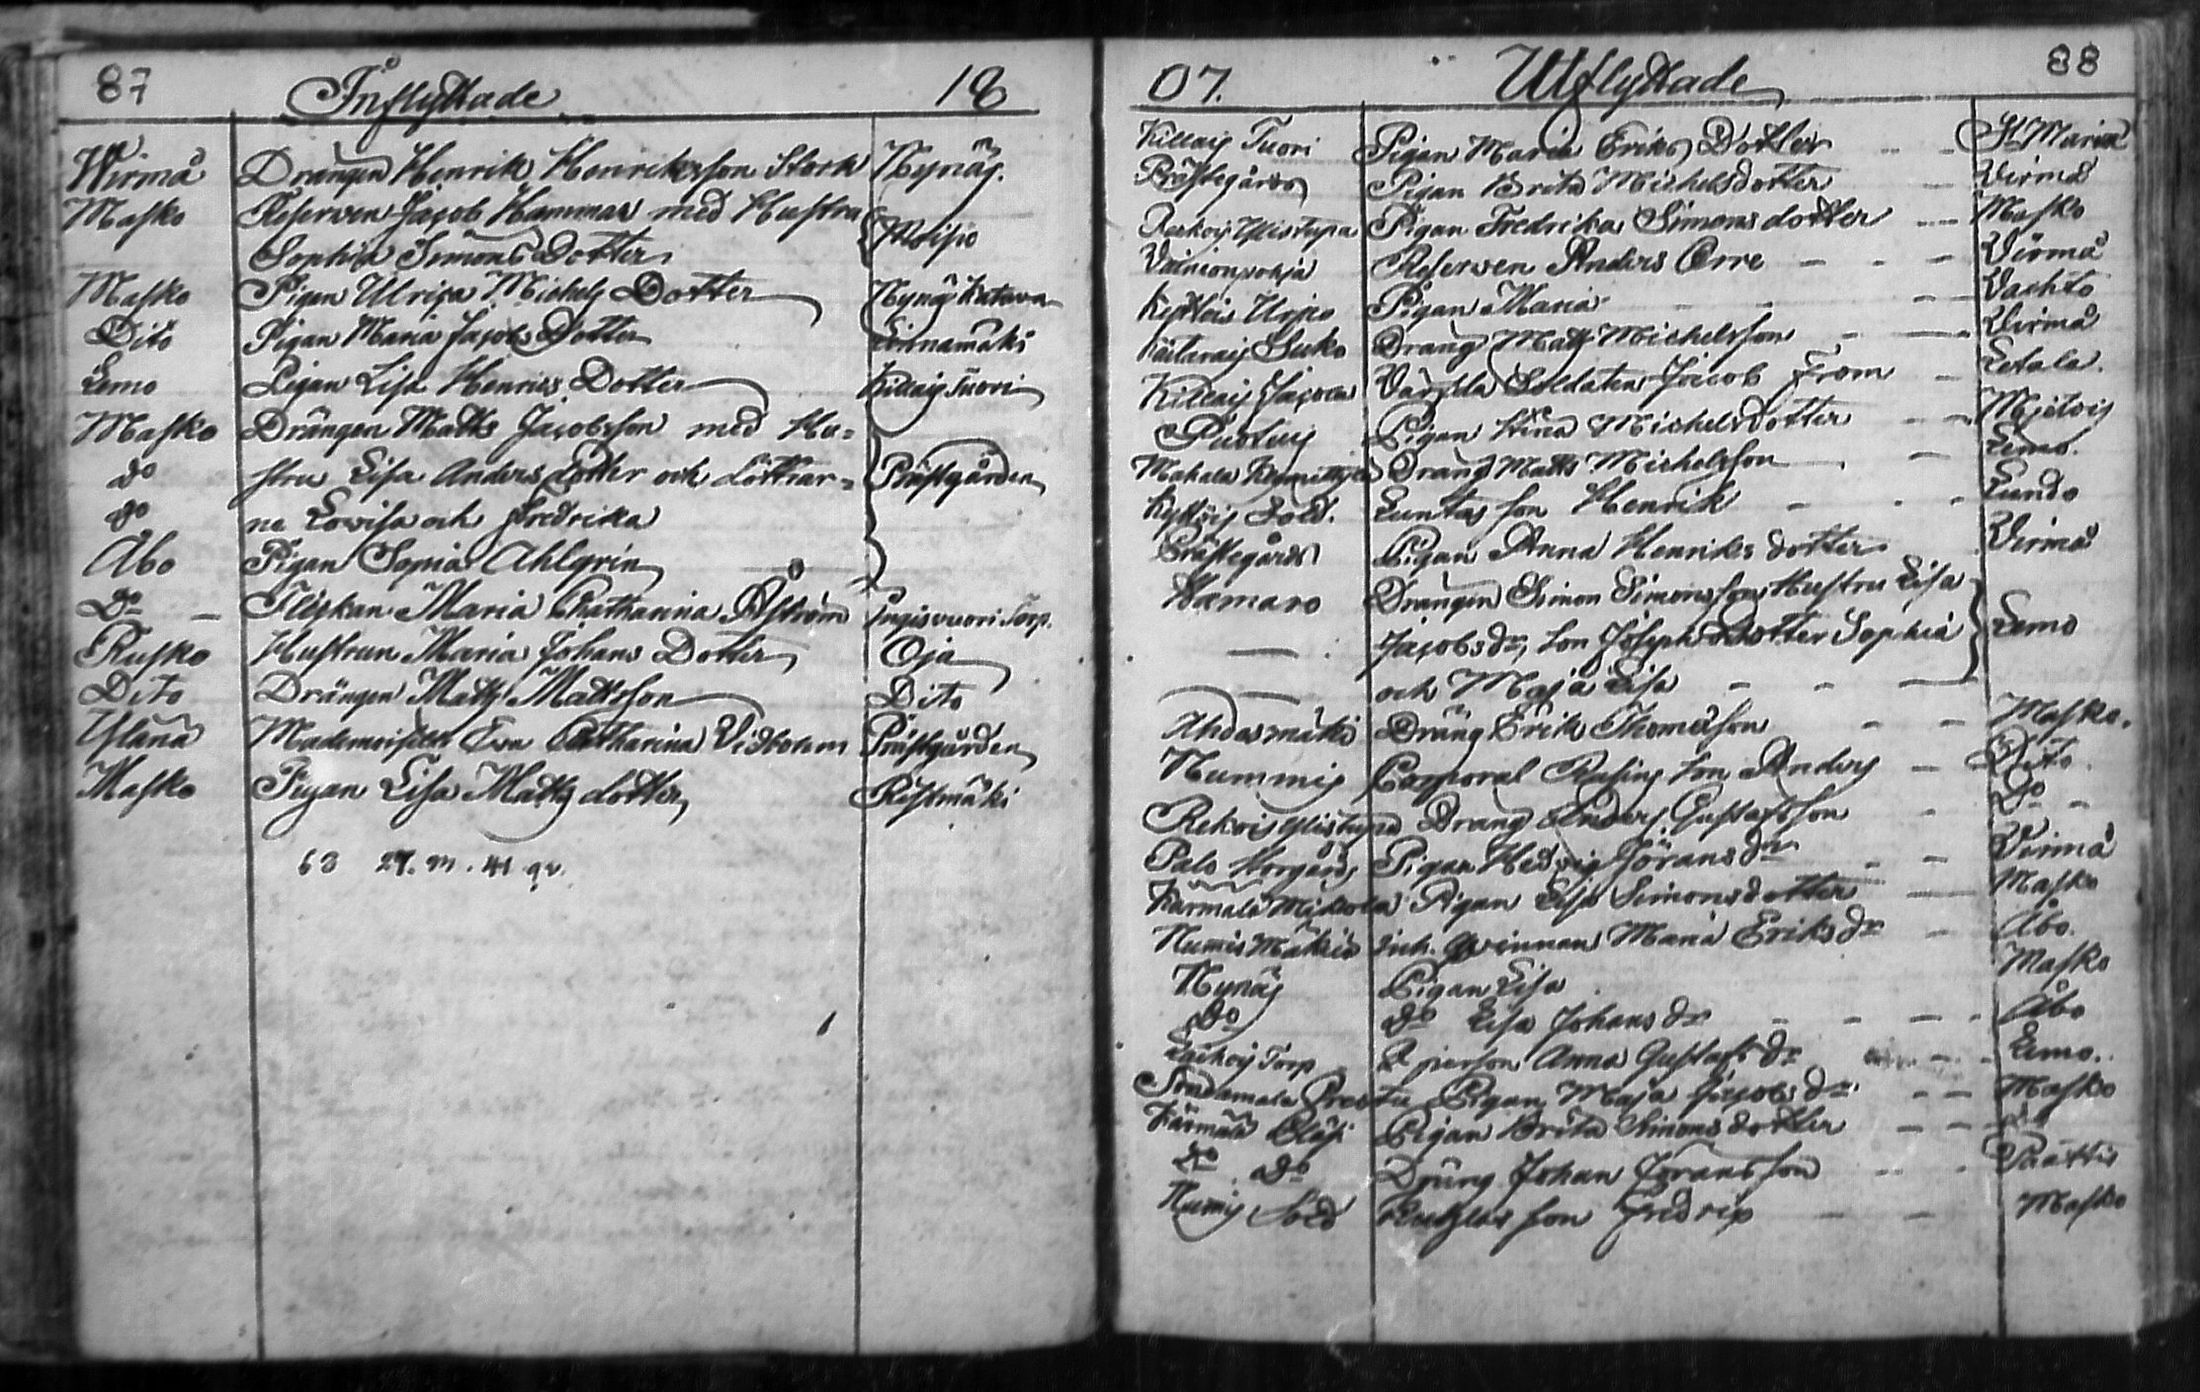 87 Inflyttade 18
Wirmå Drängen Henrik Henriksson Stork Nynäs.
Masko Reserven Jacob Hammar med Hustru
Sophia Simons Dotter Moisio
Masko Pigan Ulrica Michels Dotter Nynäs Katava
Dito Pigan Maria Jacobs Dotter Linnamäki
Lemo Pigan Lisa Henrics Dotter Killais Tuori
Masko Drängen Matts Jacobsson med Hu=
do stru Lisa Anders dotter och döttrar= Prästgården
do ne Lovisa och Fredrika
Åbo Pigan Sopia Ahlgrin
Do Flickan Maria Chatharina Åström Torp.
Rusko Hustrun Maria Johans Dotter Oja
Dito Drängen Matts Mattsson Dito
Mademoiselle Eva Catharina Vidbohm Prästgården
Masko Pigan Lisa Matts dotter Ristmäki
63 27. m. 41 qv.
07. Utflyttade 88
Killais Tuori Pigan Maria Eriks Dotter St Marie
Prästegårds Pigan Brita Michelsdotter Virmå
Yllistupa Pigan Fredrika Simons dotter Masko
Vainionpohja Reserven Anders Orre Virmå
Urpo Pigan Maria Vachto
Dräng Matts Michelsson Virmå
Killais Soldaten Jacob From Letala.
Pigan Stina Michelsdotter Mietois
Dräng Matts Michelsson Lemo.
Sold. son Henrik Lundo
Prästegårds Pigan Anna Henriks dotter Virmå
Hamaro Drängen Simon Simonsson Hustru Lisa
Jacobsdr, son Joseph Dotter Sophia Lemo
och Maja Lisa
Ahdasmäki Dräng Erik Thomasson Masko.
Nummis Corporal Rusings son Anders Dito.
Rekois Yllistupa Dräng Anders Gustafsson Do
Palo Pigan Hedvig Jörans dr Virmå
Kärmälä Mikkola Pigan Lisa Simonsdotter Masko
Numis Inh. Qvinnan Maria Eriks dr Åbo.
Nynäs Pigan Lisa Masko
Do Do Lisa Johans dr Åbo
Torp Anna Gustafs dr Lemo.
Pigan Maja Jacobs dr Masko
Kärmälä Pigan Brita Simons dotter do
Do Do Dräng Johan Joransson Paattis
Numis Sold son Fredric Masko